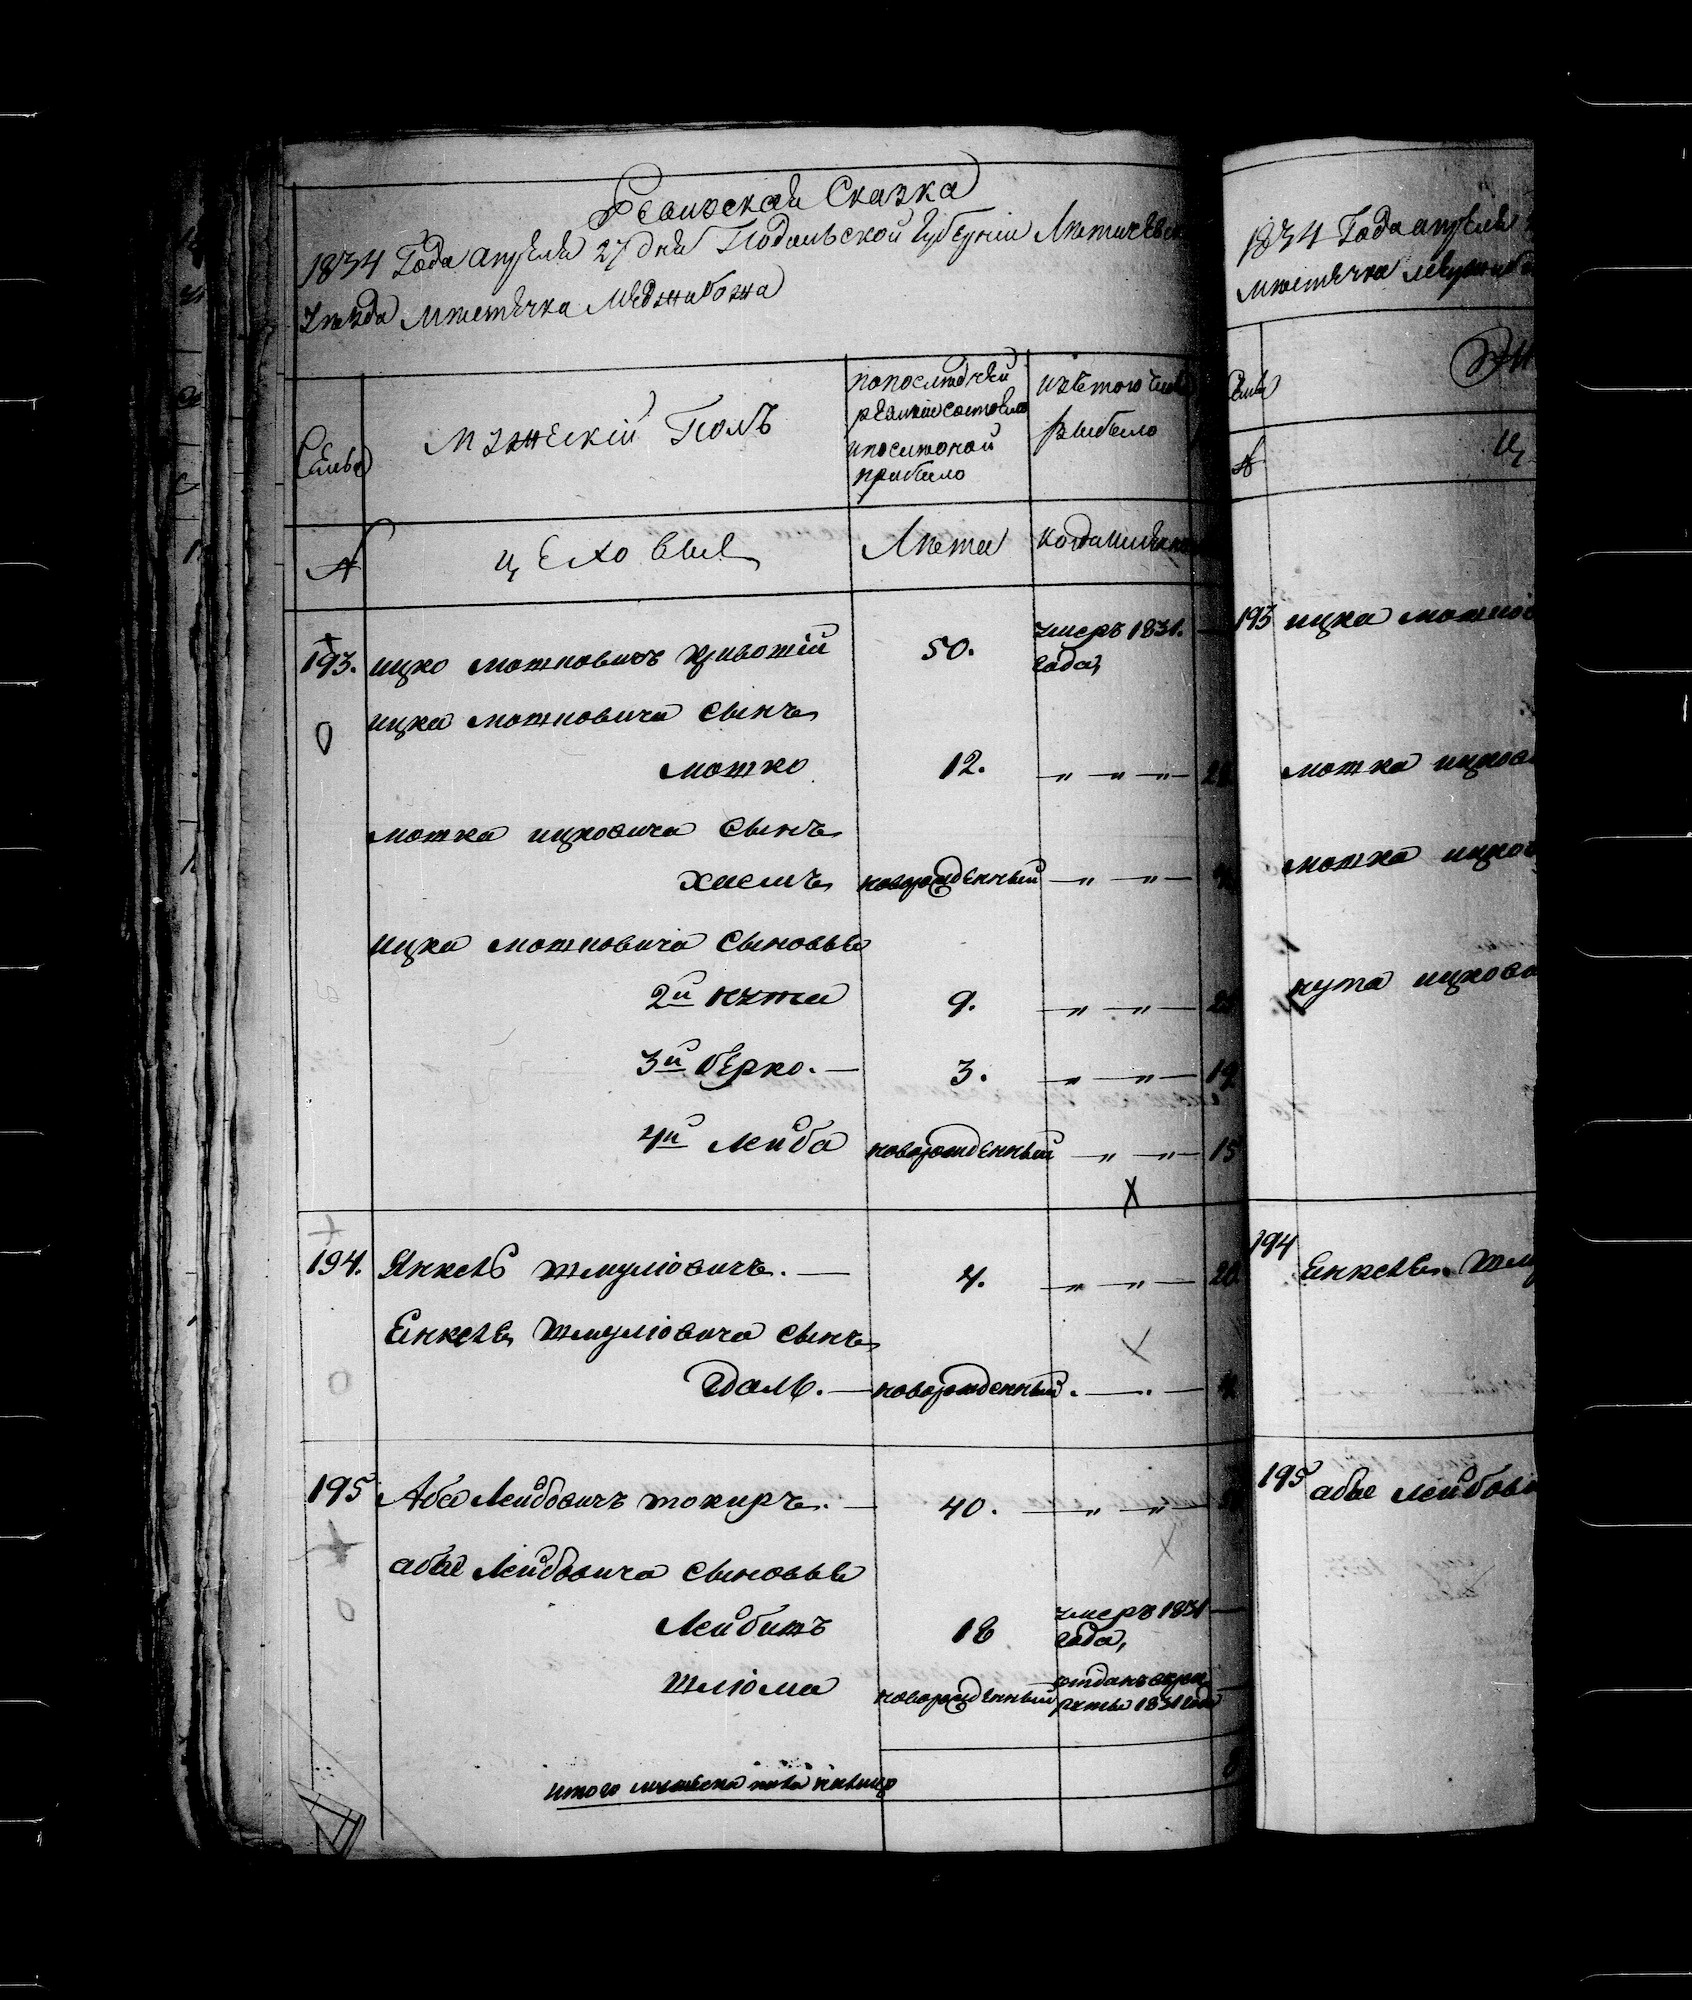 Ревизская Сказка
1834 Года апреля 27 дня Подольской Губернiи Летичевск
уезда местечка Меджибожа
Семьи
мужескiй Полъ
по последней
ревизiи состояло
и после оной
прибыло
изъ того числа
выбыло
№
цеховые
Лета
когда именно
193.
ицко мошковичъ кривошiй
50.
умеръ 1831.
года,
ицка мошковича сынъ
мошко
12.
28
мошка ицковича сынъ
хаимъ
новорожденный
ицка мошковича сыновья
2й нута
9.
3й берко.
3.
19
4й лейба
новорожденный
15
X
194.
Янкель шмулiовичъ.
4.
20
Енкеля шмулiовича сынъ
новорожденный.
195
Аба Лейбовичъ токиръ.
40.
абы Лейбовича сыновья
Лейбишъ
18
умеръ 1831
года,
шлiома
новорожденный
отданъ въ рек
руты 1831 года
итого мужеска пола на лицо
1834 Года апреля
местечка
Семьи
№
193 ицка мошков
мошка ицков
мошка ицков
нута ицков
194
Енкеля шму
195 абы лейбови